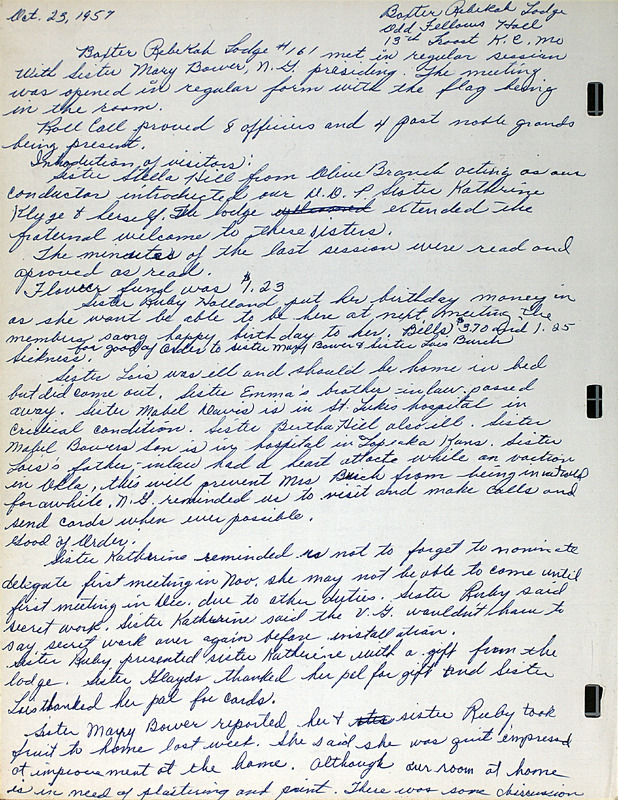 Oct. 23, 1957
Baxter Rebekah Lodge
Odd Fellows Hall
13th Troost K.C. Mo
Baxter Rebekah Lodge #161 met in regular session
With Sister Mary Bower, N.G. presiding. The meeting
was opened in regular form with the flag being
in the room.
Roll Call proved 8 officiers and 4 past noble grands
being present.
Introdution of visitors:
Sister Stella Hill from Olive Branch acting as our
conductor introducted our D.D.P Sister Katherine
Klyge & herself. The lodge extended the
fraternal welcome to these sisters.
The minutes of the last session were read and
aproved as read.
Flower fund was $1.23
Sister Ruby Holland put her birthday money in
as she wont be able to be here at next meeting. The
members sang happy birthday to her. Bills $3.70 and 1.25
for good of Order to sister Mary Bower & Sister Lois Burch
Sickness.
Sister Lois was ill and should be home in bed
but did come out. Sister Emma's brother-in law passed
away. Sister Mabel Davis is in St. Lukes hospital in
critical condition. Sister Bertha Hill also ill. Sister
Mabel Bowers son is in hospital in Topeaka Kans. Sister
Lois's father-inlaw had a heart attack while on vaction
in Okla, this will prevent Mrs Burch from being
for awhile. N.G. reminded us to visit and make calls and
send cards when ever possible.
Good of Order.
Sister Katherine reminded us not to forget to nominate
delegate first meeting in Nov. she may not be able to come until
first meeting in Dec. due to other duties. Sister Ruby said
secret work. Sister Katherine said the V.G. wouldn't have to
say secret work over again before installation.
Sister Ruby presented sister Katherine with a gift from the
lodge. Sister Gladys thanked her pal for gift and Sister
Lois thanked her pal for cards.
Sister Mary Bower reported her & sister Ruby took
fruit to home last week. She said she was quit empressed
at improvement at the home. Although our room at home
is in need of plastering and paint. There was some discussion